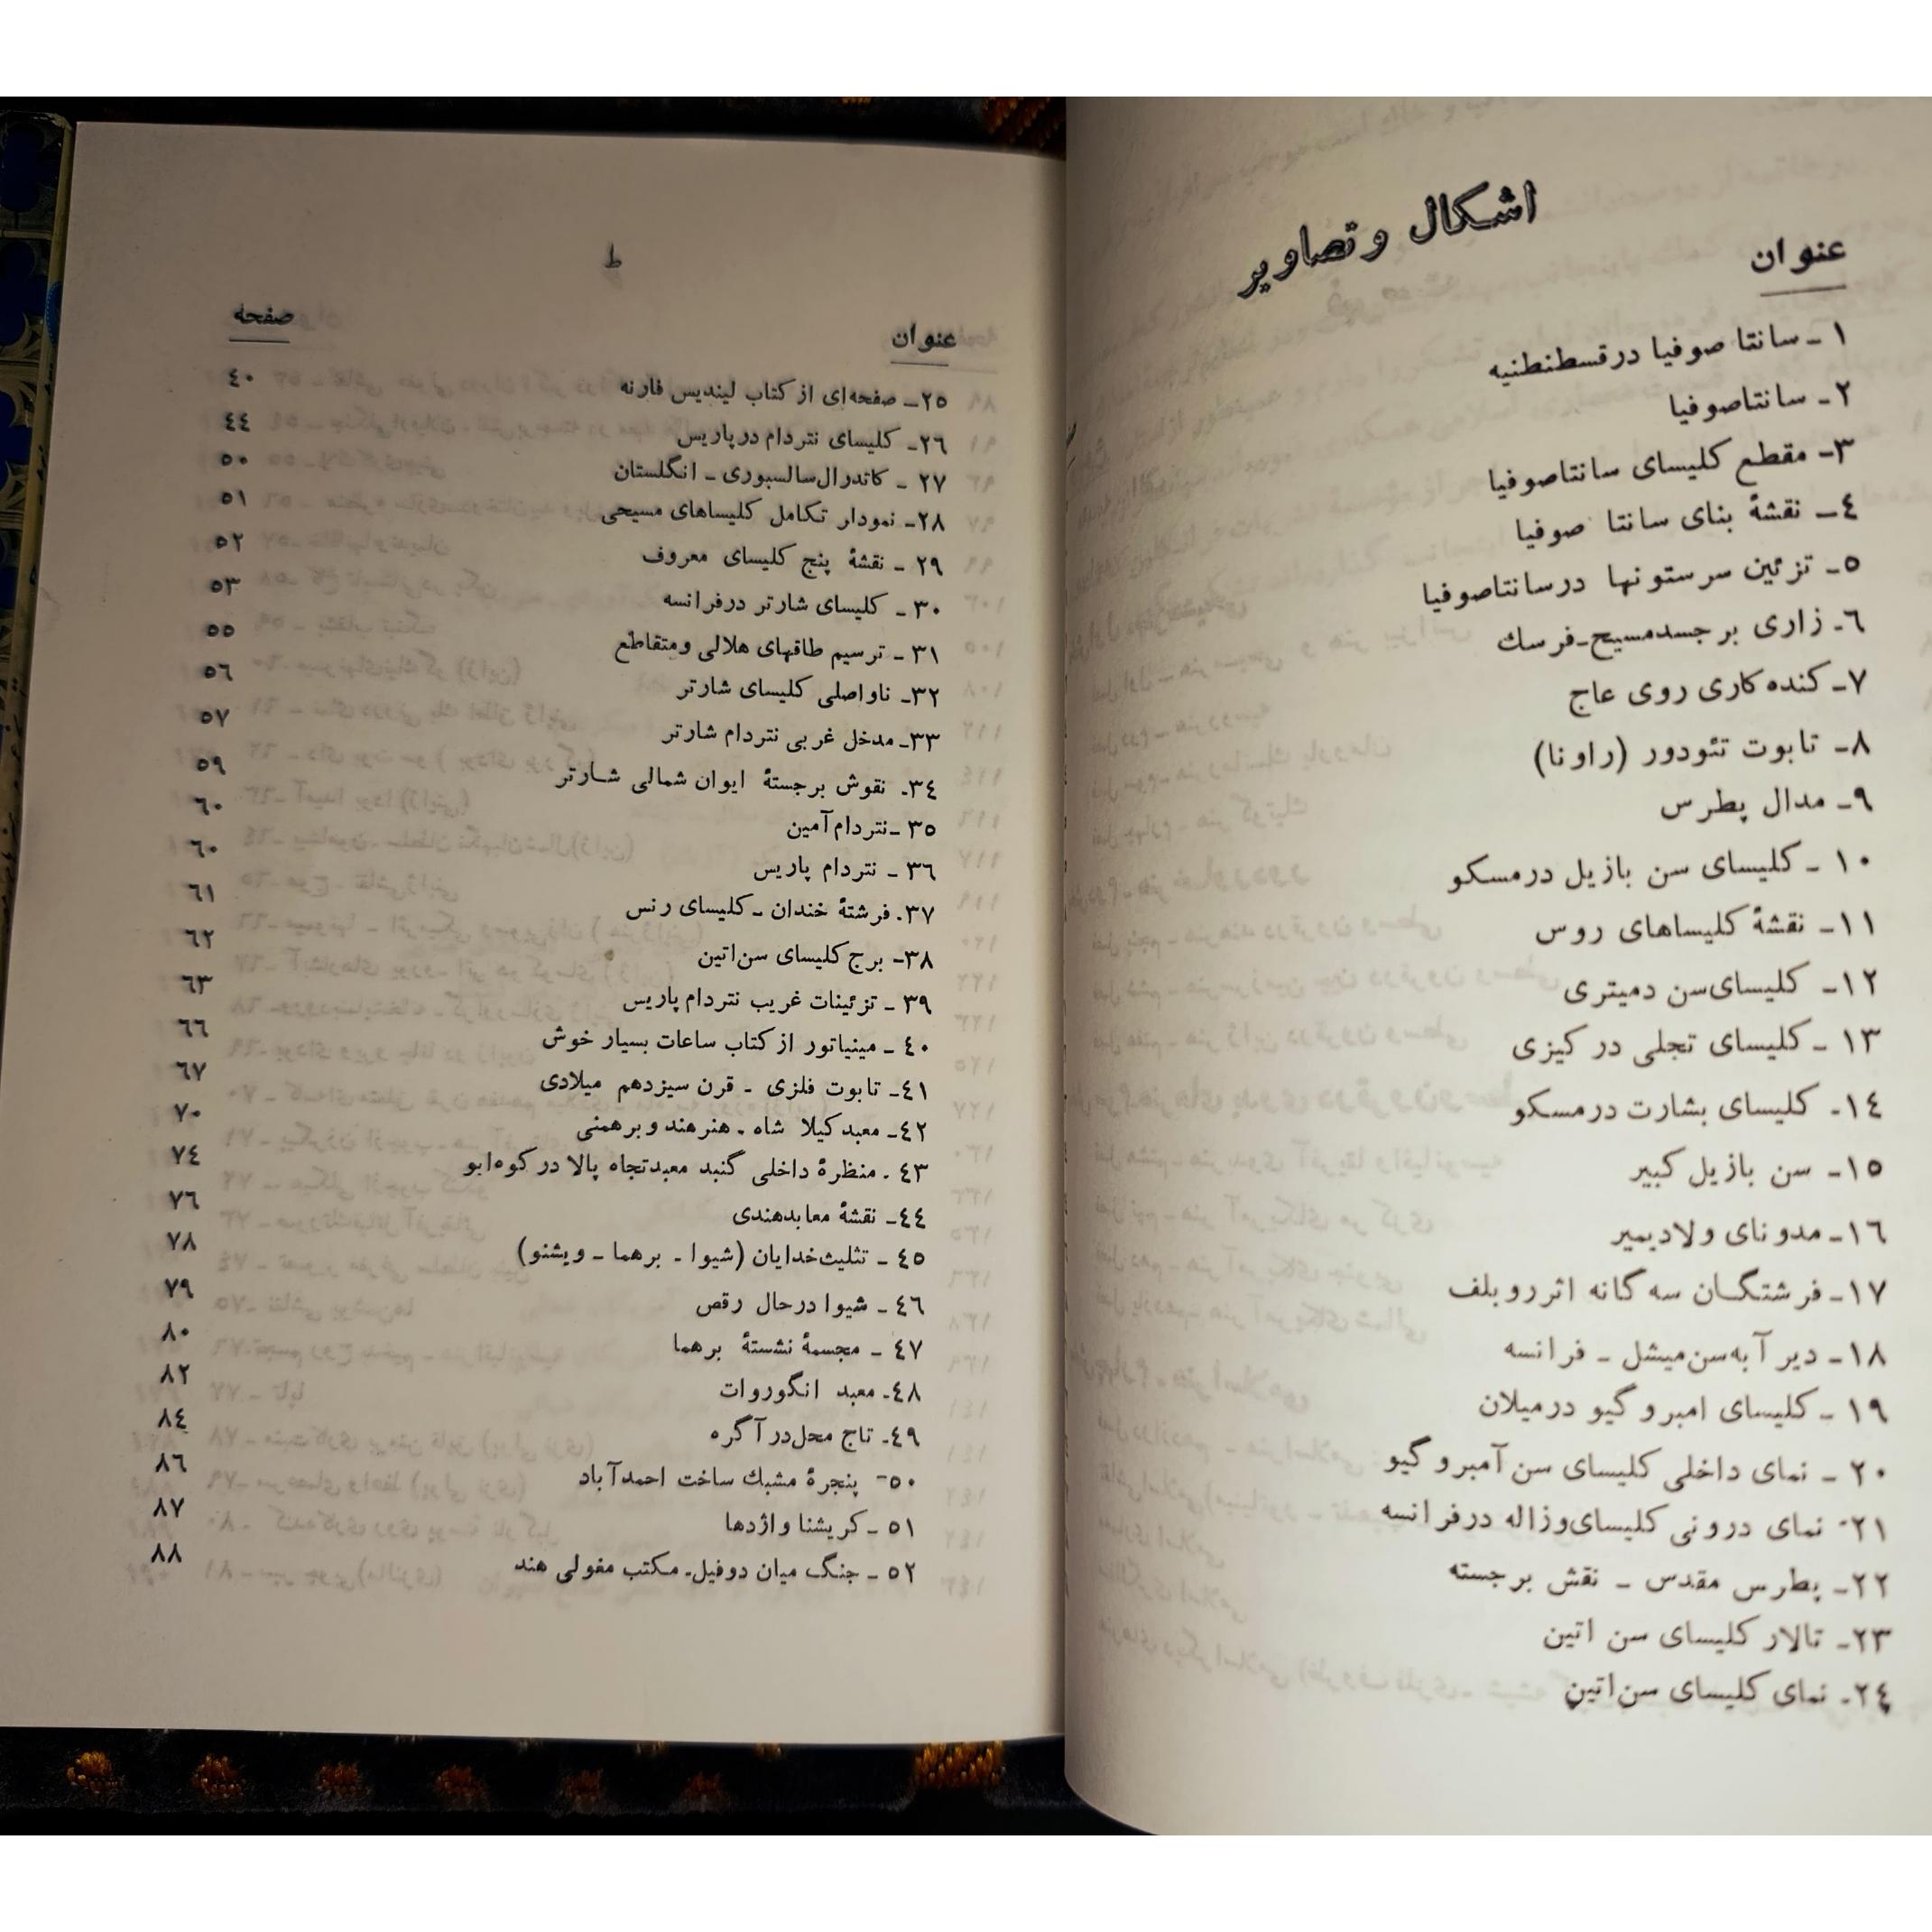 اشكال وتصاوير
عنوان
۱ ـ سانتا صوفیا درقسطنطنیه
۲ ـ سانتاصوفیا
۳ـ مقطع کلیسای سانتاصوفیا
٤ ـ نقشهٔ بنای سانتا صوفیا
٥ـ تزئین سرستونها درسانتاصوفیا
٦ـ زاری برجسدمسیح ـ فرسك
۷ـ کنده‌کاری روی عاج
۸ـ تابوت تئودور (راونا)
۹ـ مدال پطرس
۱۰ ـ کلیسای سن بازیل درمسکو
۱۱ـ نقشهٔ کلیساهای روس
۱۲ـ کلیسای‌سن دمیتری
۱۳ ـ کلیسای تجلی در کیزی
۱٤ـ کلیسای بشارت درمسکو
۱٥ـ سن بازیل کبیر
۱٦ـ مدونای ولادیمیر
۱۷ـ فرشتگان سه گانه اثرروبلف
۱۸ـ دیرآبه‌سن‌میشل ـ فرانسه
۱۹ ـ کلیسای امبروگیو درمیلان
۲۰ ـ نمای داخلی کلیسای سن آمبروگیو
۲۱ـ نمای درونی کلیسای‌وزاله درفرانسه
۲۲ـ پطرس مقدس ـ نقش برجسته
۲۳ـ تالار کلیسای سن اتین
۲٤ـ نمای کلیسای سن‌اتین
ط
عنوان صفحه
۲٥ـ صفحه‌ای از کتاب لیندیس فارنه ٤۰
۲٦ـ کلیسای نتردام درپاریس ٤٤
۲۷ ـ کاتدرال‌سالسبوری ـ انگلستان ٥۰
۲۸ـ نمودار تکامل کلیساهای مسیحی ٥۱
۲۹ ـ نقشهٔ پنج کلیسای معروف ٥۲
۳۰ ـ کلیسای شارتر درفرانسه ٥۳
۳۱ ـ ترسیم طاقهای هلالی ومتقاطع ٥٥
۳۲ـ ناواصلی کلیسای شارتر ٥٦
۳۳ـ مدخل غربی نتردام شارتر ٥۷
۳٤ـ نقوش برجستهٔ ایوان شمالی شارتر ٥۹
۳٥ ـ نتردام‌آمین ٦۰
۳٦ ـ نتردام پاریس ٦۰
۳۷ـ فرشتهٔ خندان ـ کلیسای رنس ٦۱
۳۸ـ برج کلیسای سن‌اتین ٦۲
۳۹ ـ تزئینات غریب نتردام پاریس ٦۳
٤۰ ـ مینیاتور از کتاب ساعات بسیار خوش ٦٦
٤۱ـ تابوت فلزی ـ قرن سیزدهم میلادی ٦۷
٤۲ـ معبدکیلا شاه ـ هنرهند وبرهمنی ۷۰
٤۳ ـ منظرهٔ داخلی گنبد معبدتجاه پالا در کوه‌ابو ۷٤
٤٤ـ نقشهٔ معابدهندی ۷٦
٤٥ ـ تثلیث‌خدایان (شیوا ـ برهما ـ ویشنو) ۷۸
٤٦ ـ شیوا درحال رقص ۷۹
٤۷ ـ مجسمهٔ نشستهٔ برهما ۸۰
٤۸ـ معبد انگوروات ۸۲
٤۹ـ تاج محل‌در آگره ۸٤
٥۰ـ پنجرهٔ مشبك ساخت احمدآباد ۸٦
٥۱ ـ کریشنا واژدها ۸۷
٥۲ ـ جنگ میان دوفیل ـ مکتب مغولی هند ۸۸